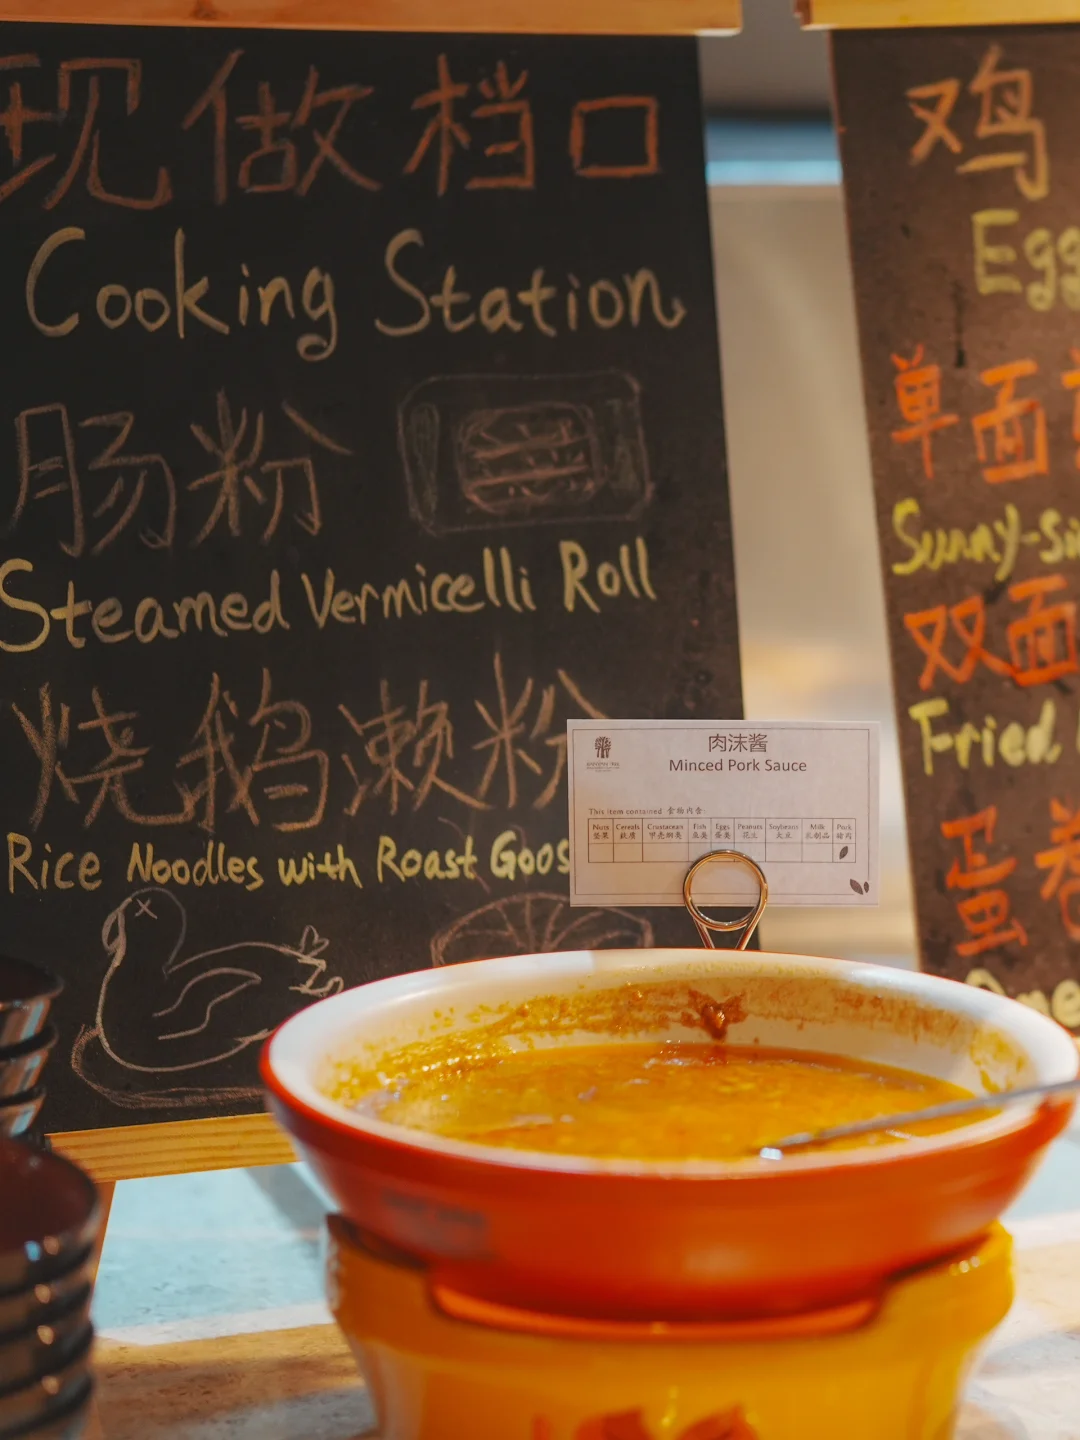 现做档口
Cooking Station
肠粉
Steamed Vermicelli Roll
烧鹅濑粉
Rice Noodles with Roast Goos
鸡
Egg
单面
Sunny-Si
双面
Fried
蛋卷
Ome
肉沫酱
Minced Pork Sauce
This item contained 食物内含:
Nuts Cereals Crustacean Fish Eggs Peanuts Soybeans Milk Pork
坚果 麸质 甲壳贝类 鱼类 蛋类 花生 大豆 乳制品 猪肉